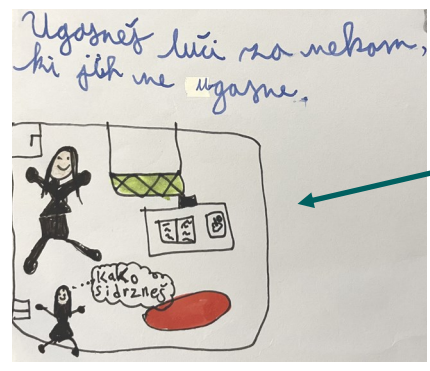 Ugasneš luči za nekom,
ki jih ne ugasne.
KaKo
si drzneš